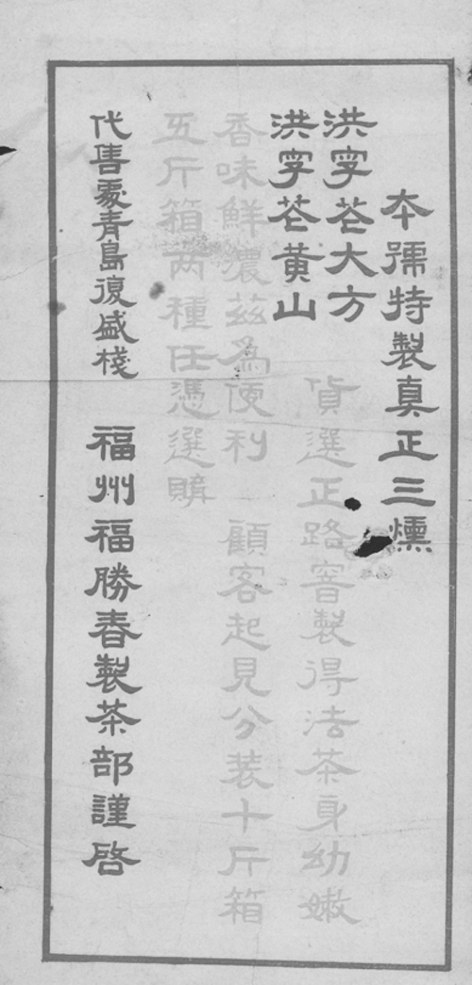 本號特製真正三燻
洪大方
洪黃山
貨選正路窨製得法茶身幼嫩
香味鮮濃茲為便利
顧客起見分装十斤箱
五斤箱两種任憑選購
代售處青島復盛棧
福州福勝春製茶部謹啓